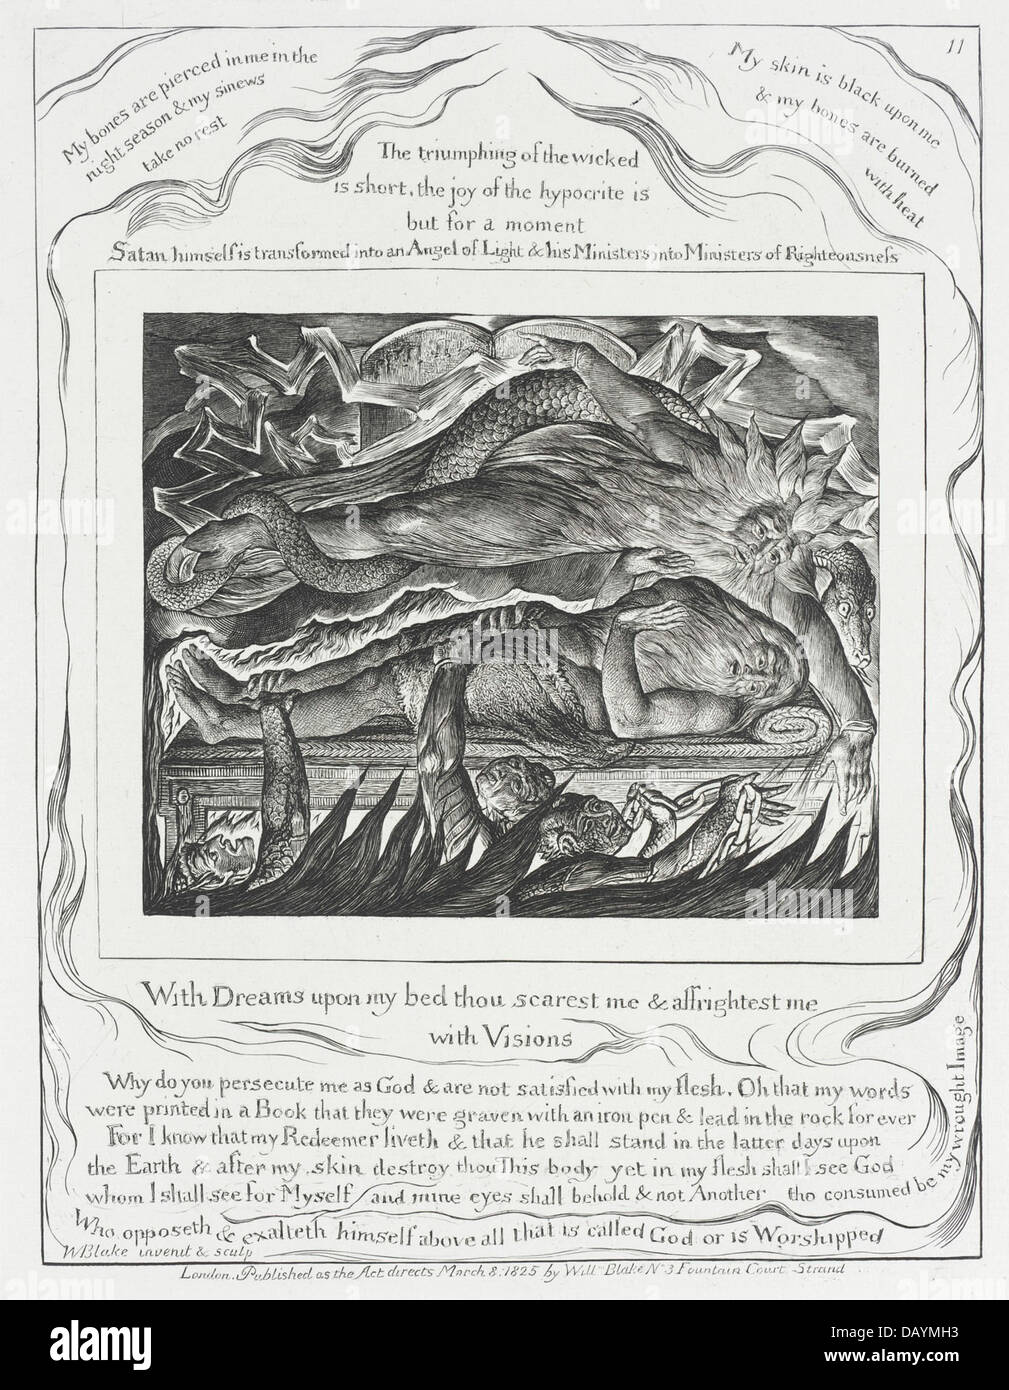 11
My bones are pierced in me in the
night season & my sinews
take no rest
My skin is black upon me
& my bones are burned
with heat
The triumphing of the wicked
is short, the joy of the hypocrite is
but for a moment
Satan himself is transformed into an Angel of Light & his Ministers into Ministers of Righteousneſs
With Dreams upon my bed thou scarest me & affrightest me
with Visions
Why do you persecute me as God & are not satisfied with my flesh. Oh that my words
were printed in a Book that they were graven with an iron pen & lead in the rock for ever
For I know that my Redeemer liveth & that he shall stand in the latter days upon
the Earth & after my skin destroy thou This body yet in my flesh shall I see God
whom I shall see for Myself and mine eyes shall behold & not Another tho consumed be my wrought Image
Who opposeth & exalteth himself above all that is called God or is Worshipped
WBlake invenit & sculp
London. Published as the Act directs March 8. 1825 by Will Blake No 3 Fountain Court Strand
alamy
Image ID: DAYMH3
www.alamy.com